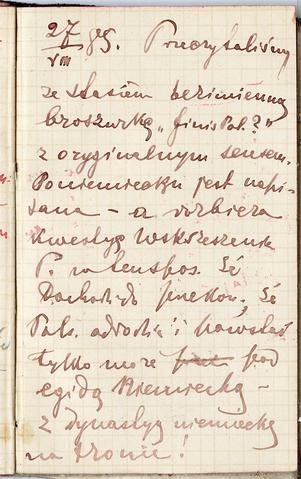 27/VIII 89. Przeczytaliśmy
ze Stasiem bezimienną
broszurkę „Finis Pol.?"
z oryginalnym sensem.
Po niemiecku jest napi-
sana – a rozbiera
kwestyę wskrzeszenia
P. w ten spos. że
dochodzi do, że
Pols. odrodzić i powstać
tylko może pod
egidą Niemiecką –
z dynastyą niemiecką
na tronie!